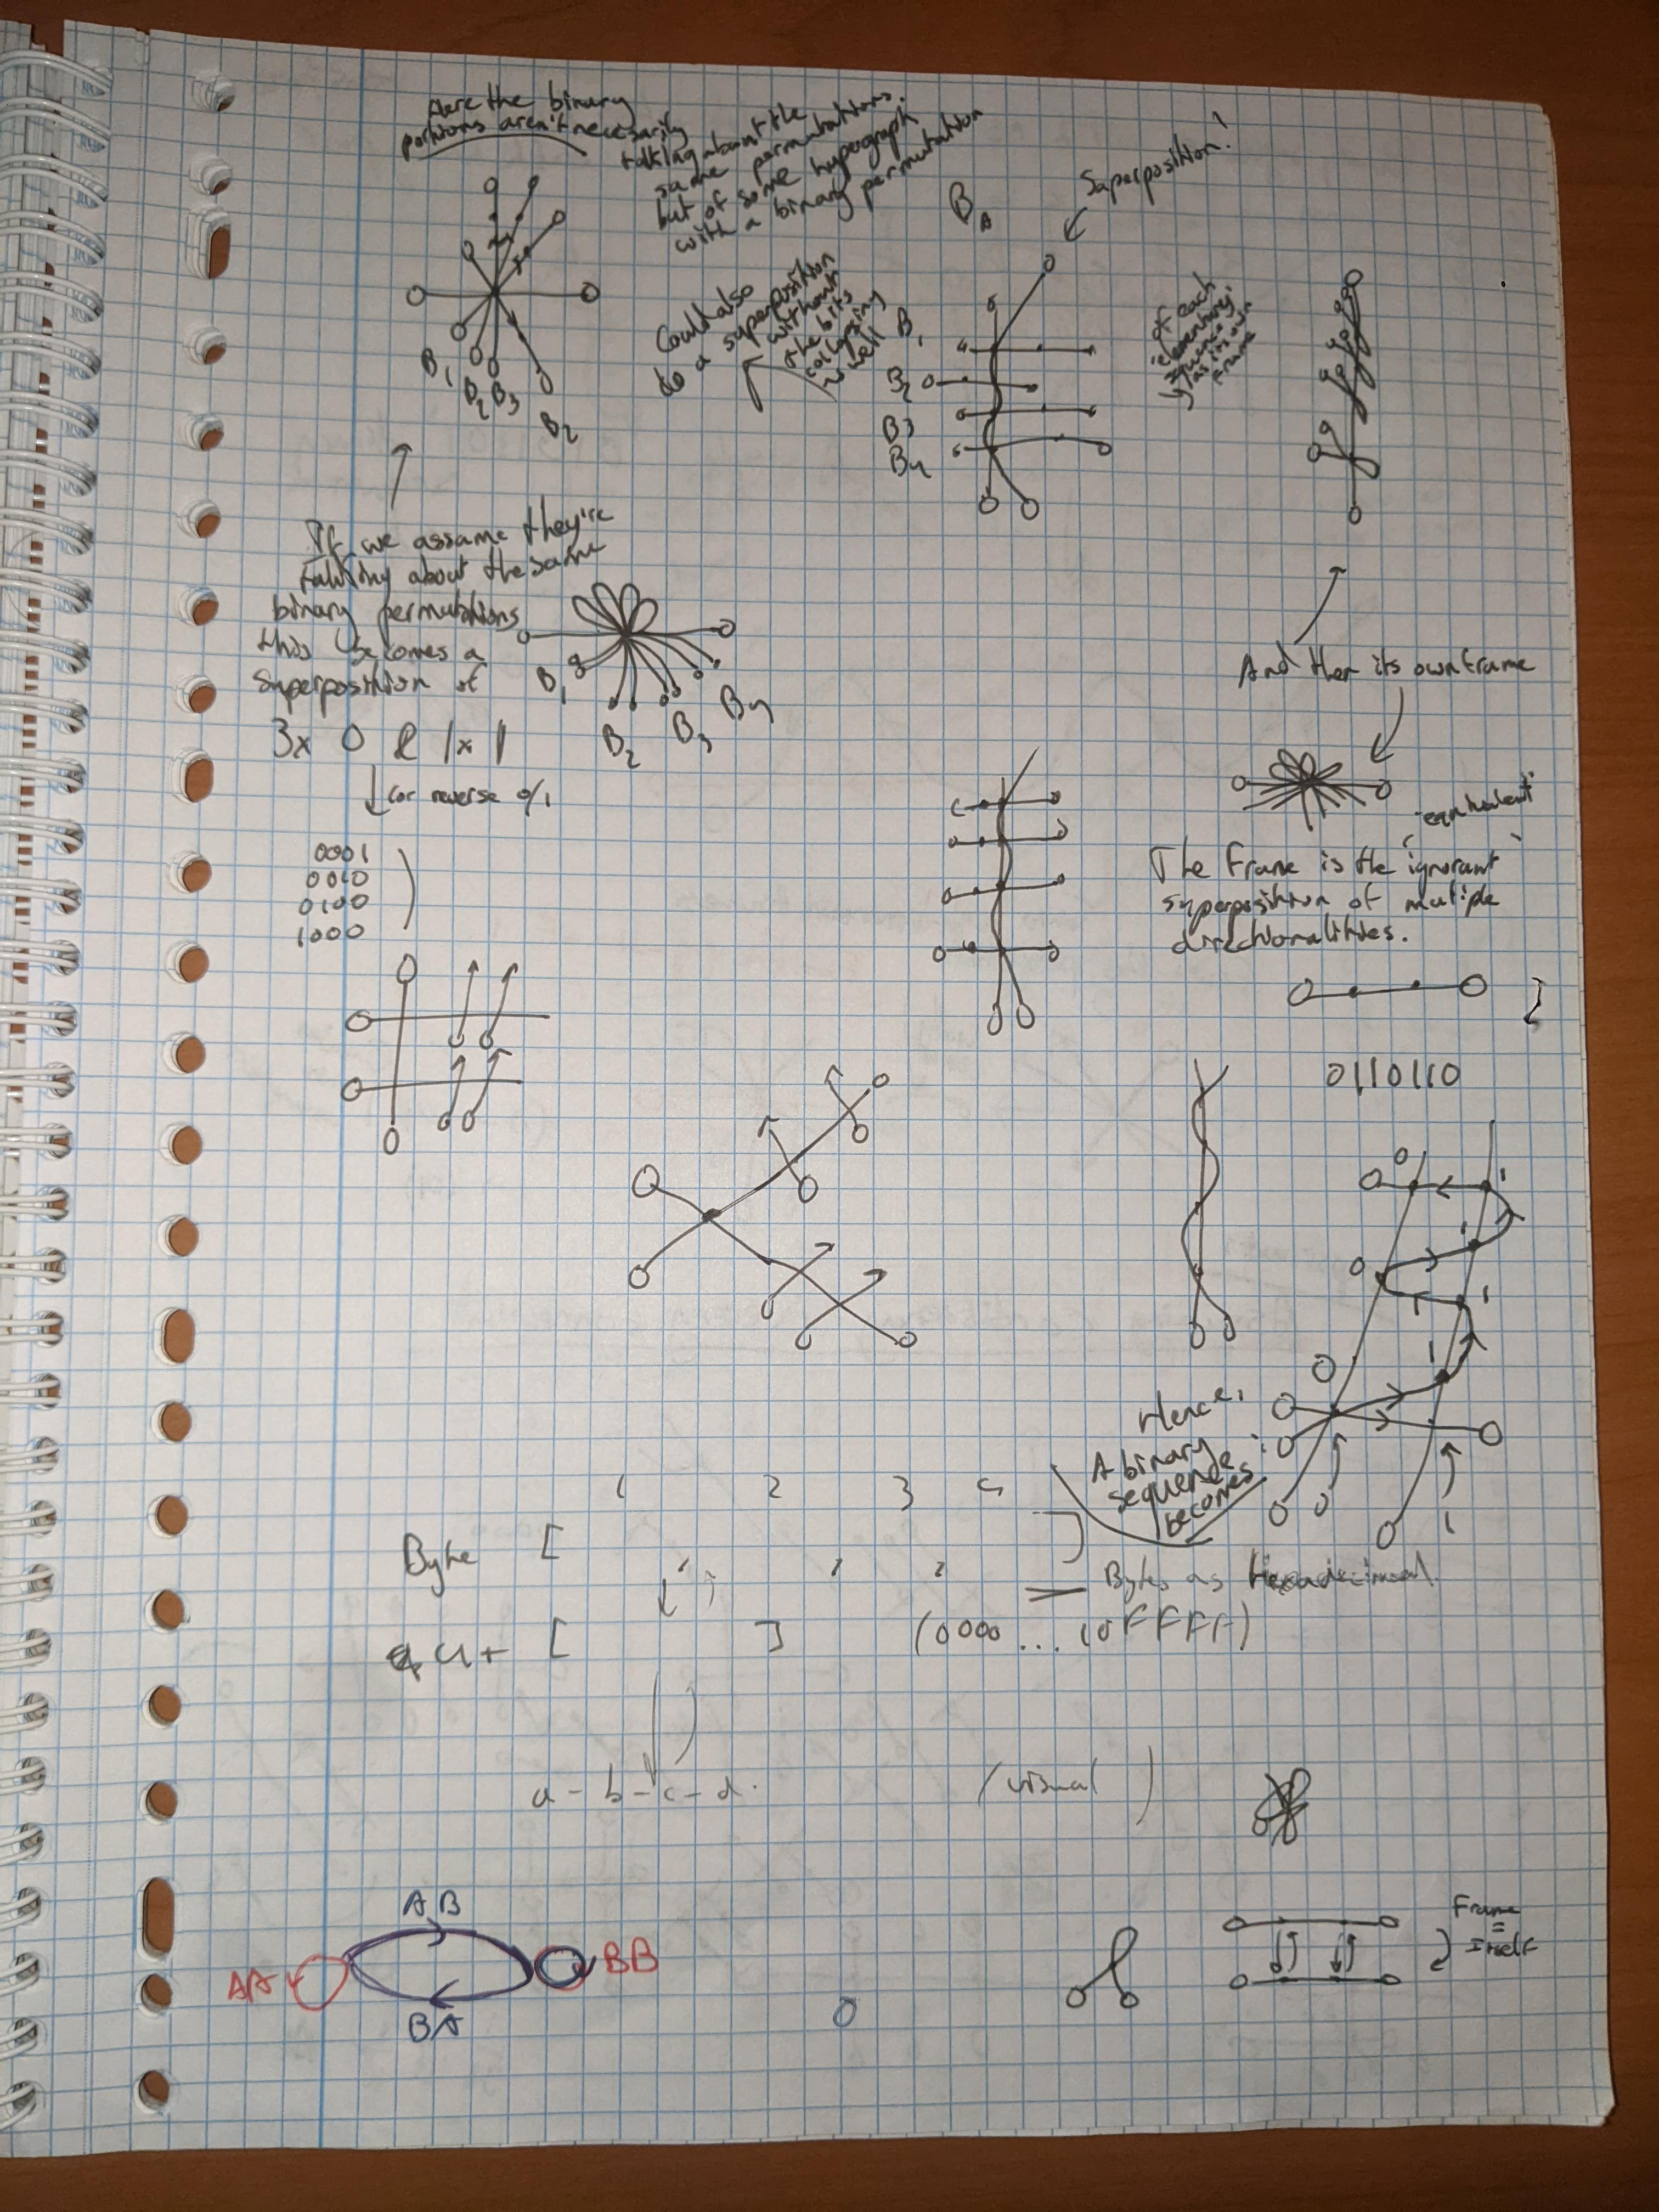 Here the binary
portions aren't necessarily
talking about the
same permutations.
but of some hypergraph
with a binary permutation
Superposition!
B
Could also
do a superposition
without
the bits
collapsing
as well
B1
B2
B3
B4
of each
'elementary'
sequence
as its own
frame
B1
B2
B3
B2
If we assume they're
talking about the same
binary permutations
this becomes a
superposition of
3x 0 & 1x 1
(or reverse 0/1
0001
0010
0100
1000
B1
B2
B3
B4
And then its own frame
'equivalent'
The Frame is the 'ignorant'
superposition of multiple
directionalities.
0110110
0
1
1
0
1
1
0
1
Hence,
A binary
sequence
becomes:
1 2 3 4
Byte [ ]
Bytes as Hexadecimal
4+ [ ] (0000 ... FFFF)
a - b - c - d.
(visual )
AB
AA
BB
BA
Frame
=
Itself